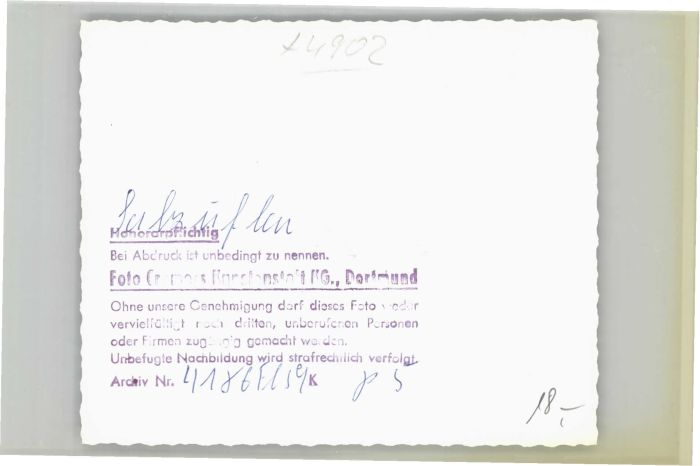 +4902
Salzuflen
Honorarpflichtig
Bei Abdruck ist unbedingt zu nennen.
Foto Cramers Kunstanstalt KG., Dortmund
Ohne unsere Genehmigung darf dieses Foto weder
vervielfältigt noch dritten, unberufenen Personen
oder Firmen zugängig gemacht werden.
Unbefugte Nachbildung wird strafrechtlich verfolgt.
Archiv Nr. K
18,-